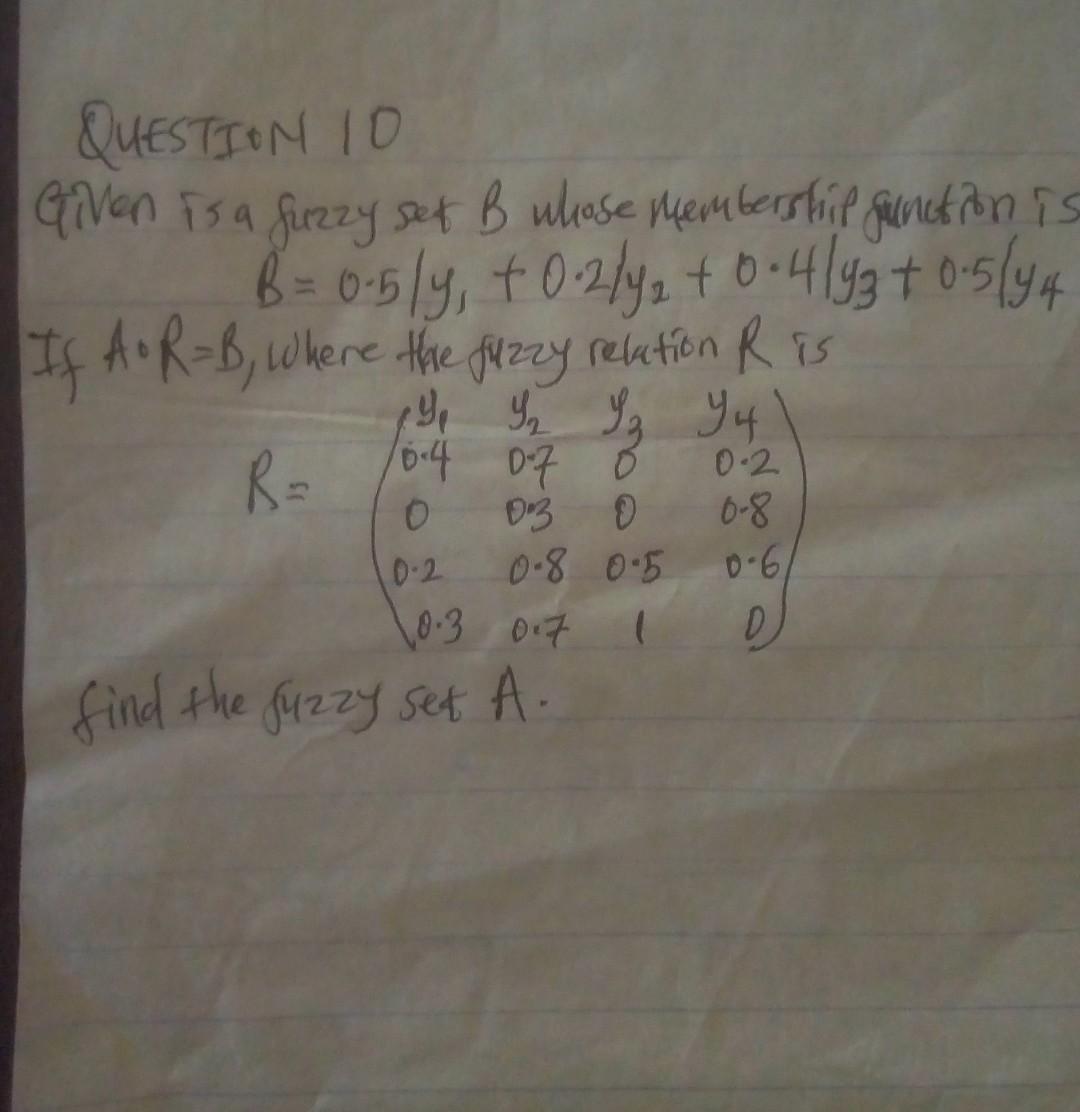 QUESTION 10
Given is a fuzzy set B whose membership function is
B = 0.5/y₁ + 0.2/y₂ + 0.4/y₃ + 0.5/y₄
If A∘R=B, where the fuzzy relation R is
y₁ y₂ y₃ y₄
0.4 0.7 0 0.2
R=
0 0.3 0 0.8
0.2 0.8 0.5 0.6
0.3 0.7 1 0
find the fuzzy set A.